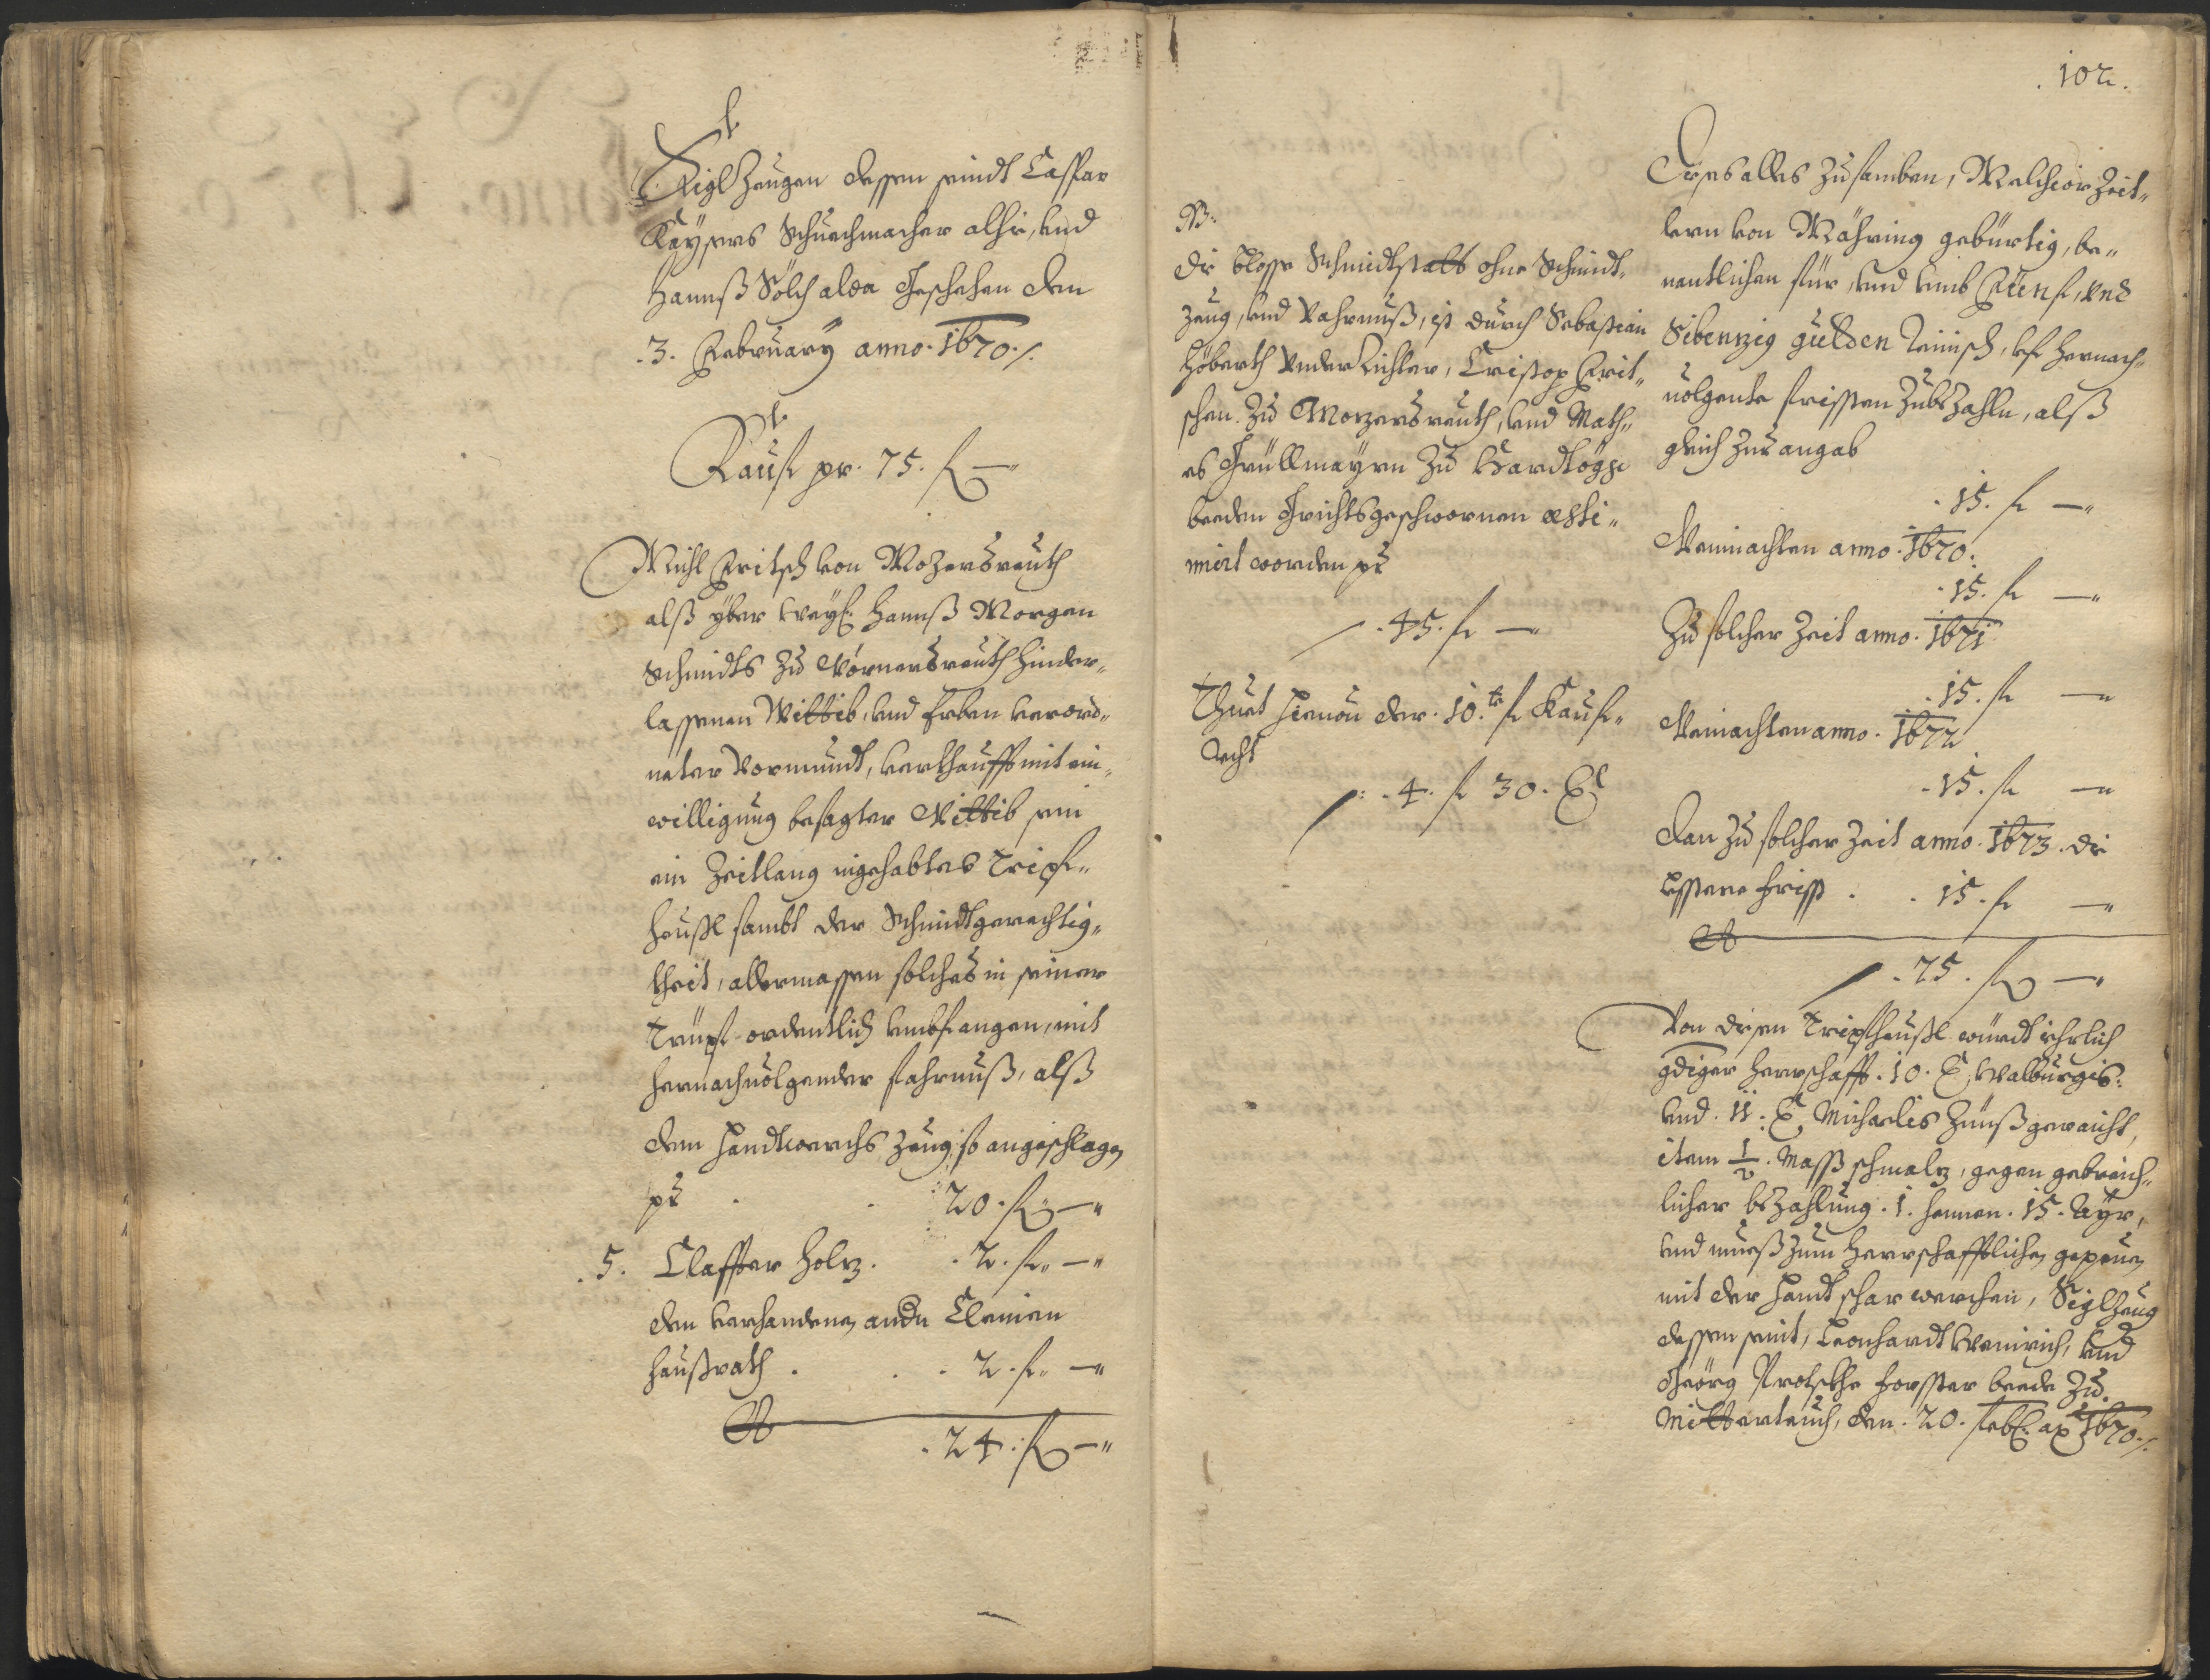 Sigl Zeugen dessen seindt Caspar
Kaysers Schuechmacher alhie, und
Hannß Sölch alda Geschehen den
.3. February anno. 1670./.
Kauf pr. 75. fl —"
Michl Fritsch von Mozersreuth
alß yber weyl: Hannß Morgen
Schmidts zu Wernersreuth hinder„
lassenen Wittib, und Erben verord„
neter Vormundt, verkhaufft mit ein„
willigung besagter Wittib sein
ein Zeitlang ingehabtes Tripf„
heußl sambt der Schmidtgerechtig„
kheit, allermassen solches in seiner
Trüpf ordentlich umbfangen, mit
hernachuolgender fahrnuß, alß
dem Handtwerchs Zeug so angeschlagen
pr . . 20. fl —"
.5. Claffter Holz. . 2. fl. —"
den verhandenen andn Clainen
haußrath . . . 2. fl. —"
. 24. fl —"
.102.
NB.
die blosse Schmidtstatt ohne Schmidt„
zeug, und Vahrnuß, ist durch Sebastian
Höberth Underrichter, Cristoph Frit„
schen zu Mozersreuth, und Math„
es Grüllmayrn zu Hardtögge
beeden Grichtsgeschwornen æsti„
mirt worden pr
. 45. fl —"
Thuet hieuon der. 10.te fl Kauf„
Recht
. 4. fl 30. x
Dises alles zusamben, Melchior Zeit„
lern von Mähring gebürtig, be„
nentlichen für, und umb Fünf, und
Sibenzig gulden Reinisch, uf hernach„
uolgente fristen zubezahln, alß
gleich zur angab
. 15. fl —"
Weinachten anno. 1670.
. 15. fl —"
Zu solcher Zeit anno. 1671
. 15. fl —"
Weinachten anno. 1672
. 15. fl —"
dan zu solcher Zeit anno. 1673. die
lesstere frisst . . 15. fl —"
. 75. fl —"
Von disem Tripfheußl würdt iehrlich
gdiger Herrschafft. 10. x Walburgis:
und. 11. x Michaelis Zünß geraicht,
item 1/2. Mass schmalz, gegen gebreich„
licher bezahlung. 1. Hennen. 15. Ayr,
und mueß zum herrschafftlichen gepeuen
mit der handt scharwerchen, Siglzeug
dessen seint, Leonhardt Weinrich, und
Geörg Protschke Forsster beede zu
Mitterteich, den. 20. feb: ao 1670./.